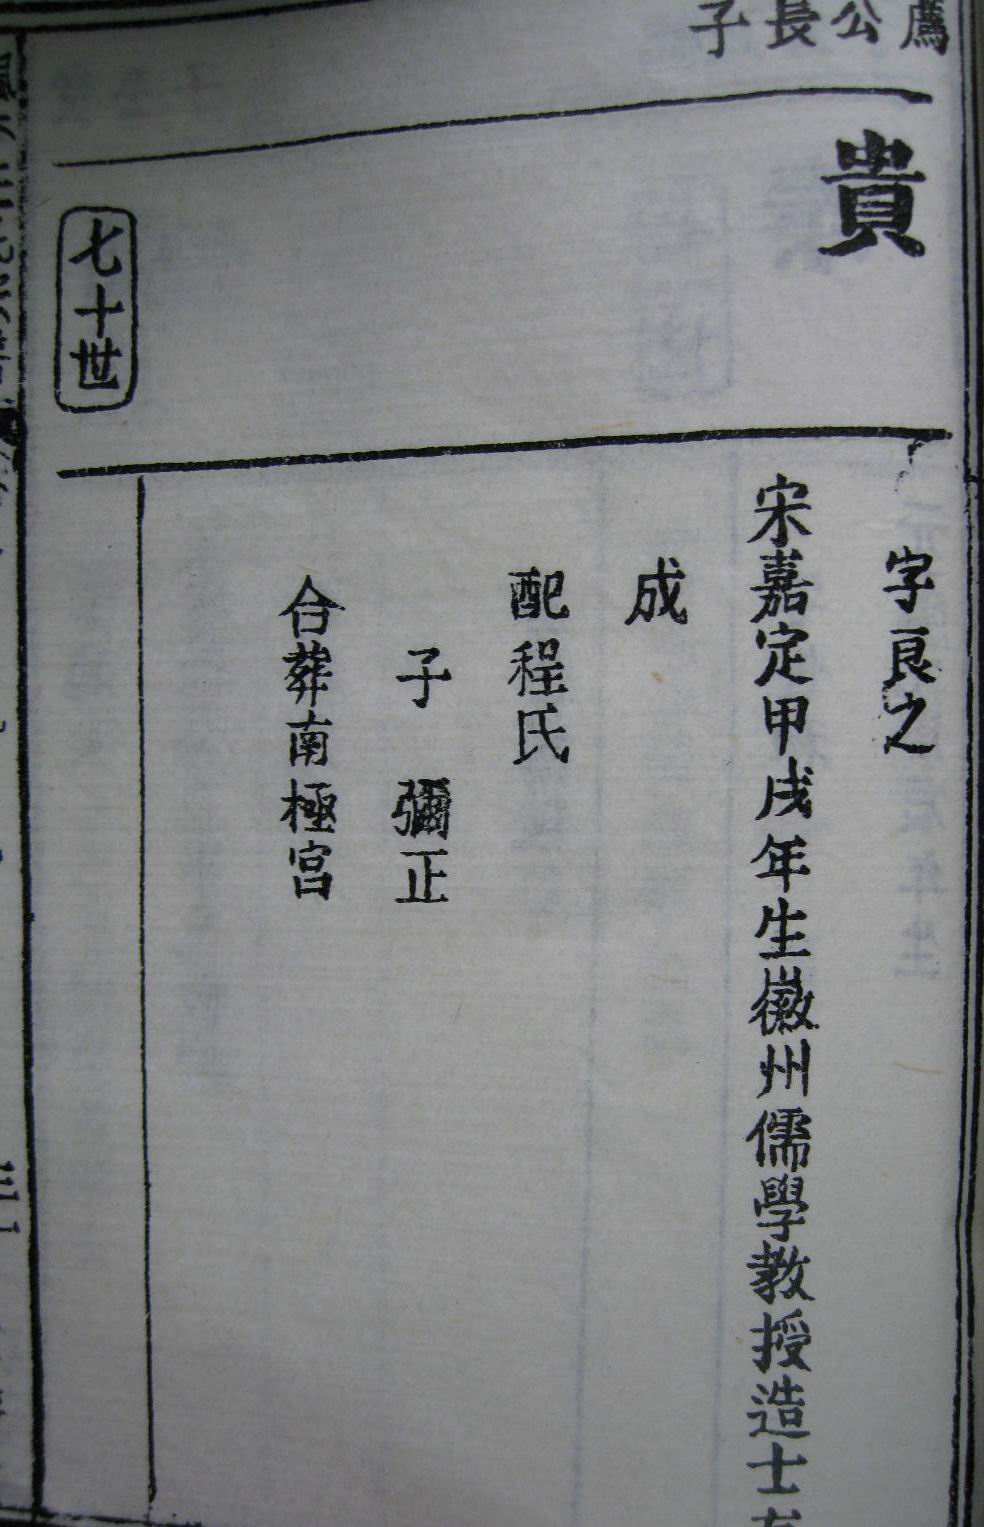 鷹公長子
貴
字良之
宋嘉定甲戌年生徽州儒學教授造士有
成
配程氏
子 彌正
合葬南極宮
七十世